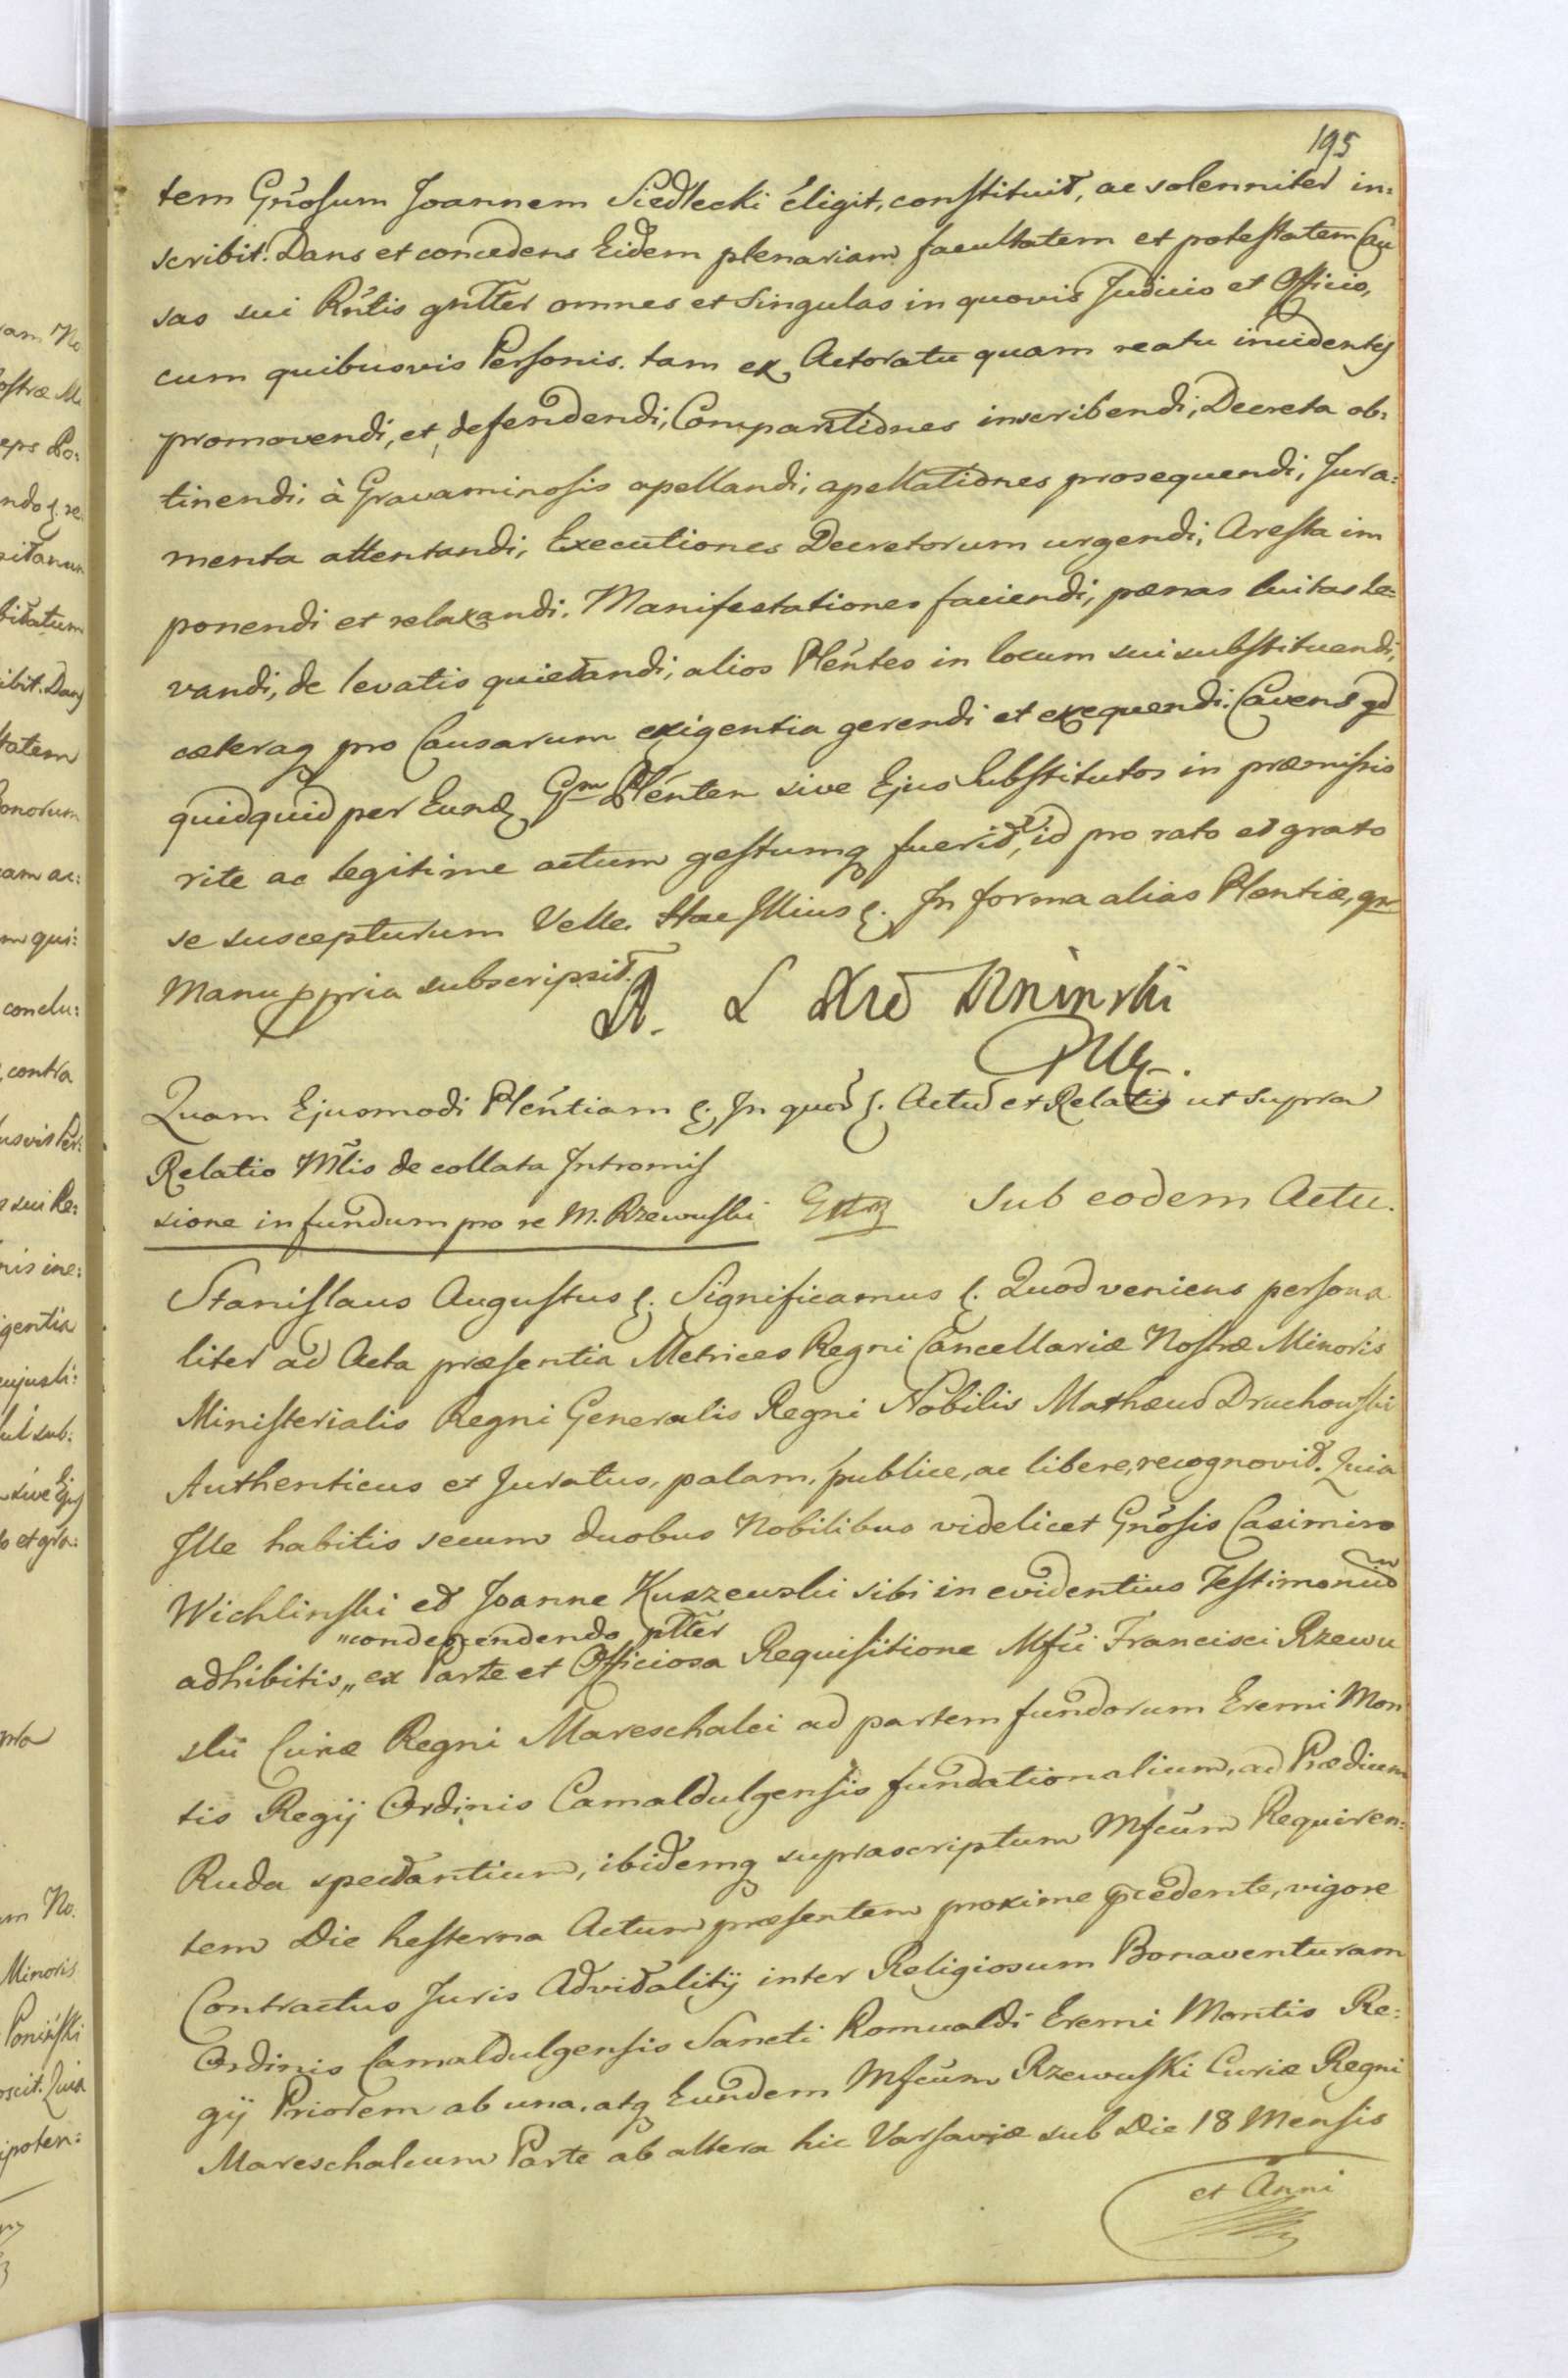 195
tem Gnõsum Joannem Siedlecki eligit, constituit, ac solenniter in:
scribit. Dans et concedens Eidem plenariam facultatem et potestatem Cau
sas sui Rñtis gnltter omnes et singulas in quovis Judicio et Officio,
cum quibusvis Personis, tam ex Actoratu quam reatu incidentes
promovendi, et defendendi, Comparitiones inscribendi, Decreta ob:
tinendi, à Gravaminosis apellandi, apellationes prosequendi, Jura:
menta attentandi, Executiones Decretorum urgendi, Aresta im
ponendi et relaxandi. Manifestationes faciendi, pœnas luitas le:
vandi, de levatis quietandi, alios Plẽntes in locum sui substituendi,
cæteraq pro Causarum exigentia gerendi et exequendi. Cavens qd
quidquid per Eund Gm Plẽnten sive Ejus Substitutos in præmissis
rite ac legitime actum gestumq fuerit, id pro rato et grato
se suscepturum Velle. Hac Illius ę. In forma alias Plentiæ, qm
Manu ppria subscripsit.
Quam Ejusmodi Plẽntiam ę. In quor ę. Actu et Relatio ut supra
Relatio Mlis de collata Intromis
sione in fundum pro re M. Rzewuski Sub eodem Actu.
Stanislaus Augustus ę. Significamus ę. Quod veniens persona
liter ad Acta præsentia Metrices Regni Cancellariæ Nostræ Minoris
Ministerialis Regni Generalis Regni Nobilis Mathæus Druchowski
Authenticus et Juratus, palam, publice, ac libere, recognovit. Quia
Ille habitis secum duobus Nobilibus videlicet Gnõsis Casimiro
Wichlinski et Joanne Kuszewski sibi in evidentius Testimonium
„condescendendo ptter
adhibitis „ ex Parte et Officiosa Requisitione Mfci Francisci Rzewu
skii Curiæ Regni Mareschalci ad partem fundorum Eremi Mon
tis Regij Ordinis Camaldulgensis fundationalium, ad Prædium
Ruda spectantium, ibidemq suprascriptum Mfcum Requiren:
tem Die hesterna Actum præsentem proxime pcedente, vigore
Contractus Juris Advitalitij inter Religiosum Bonaventuram
Ordinis Camaldulgensis Sancti Romualdi Eremi Montis Re:
gij Priorem ab una, atq Eundem Mfcum Rzewuski Curiæ Regni
Mareschalcum Parte ab altera hic Varsaviæ sub Die 18 Mensis
et Anni